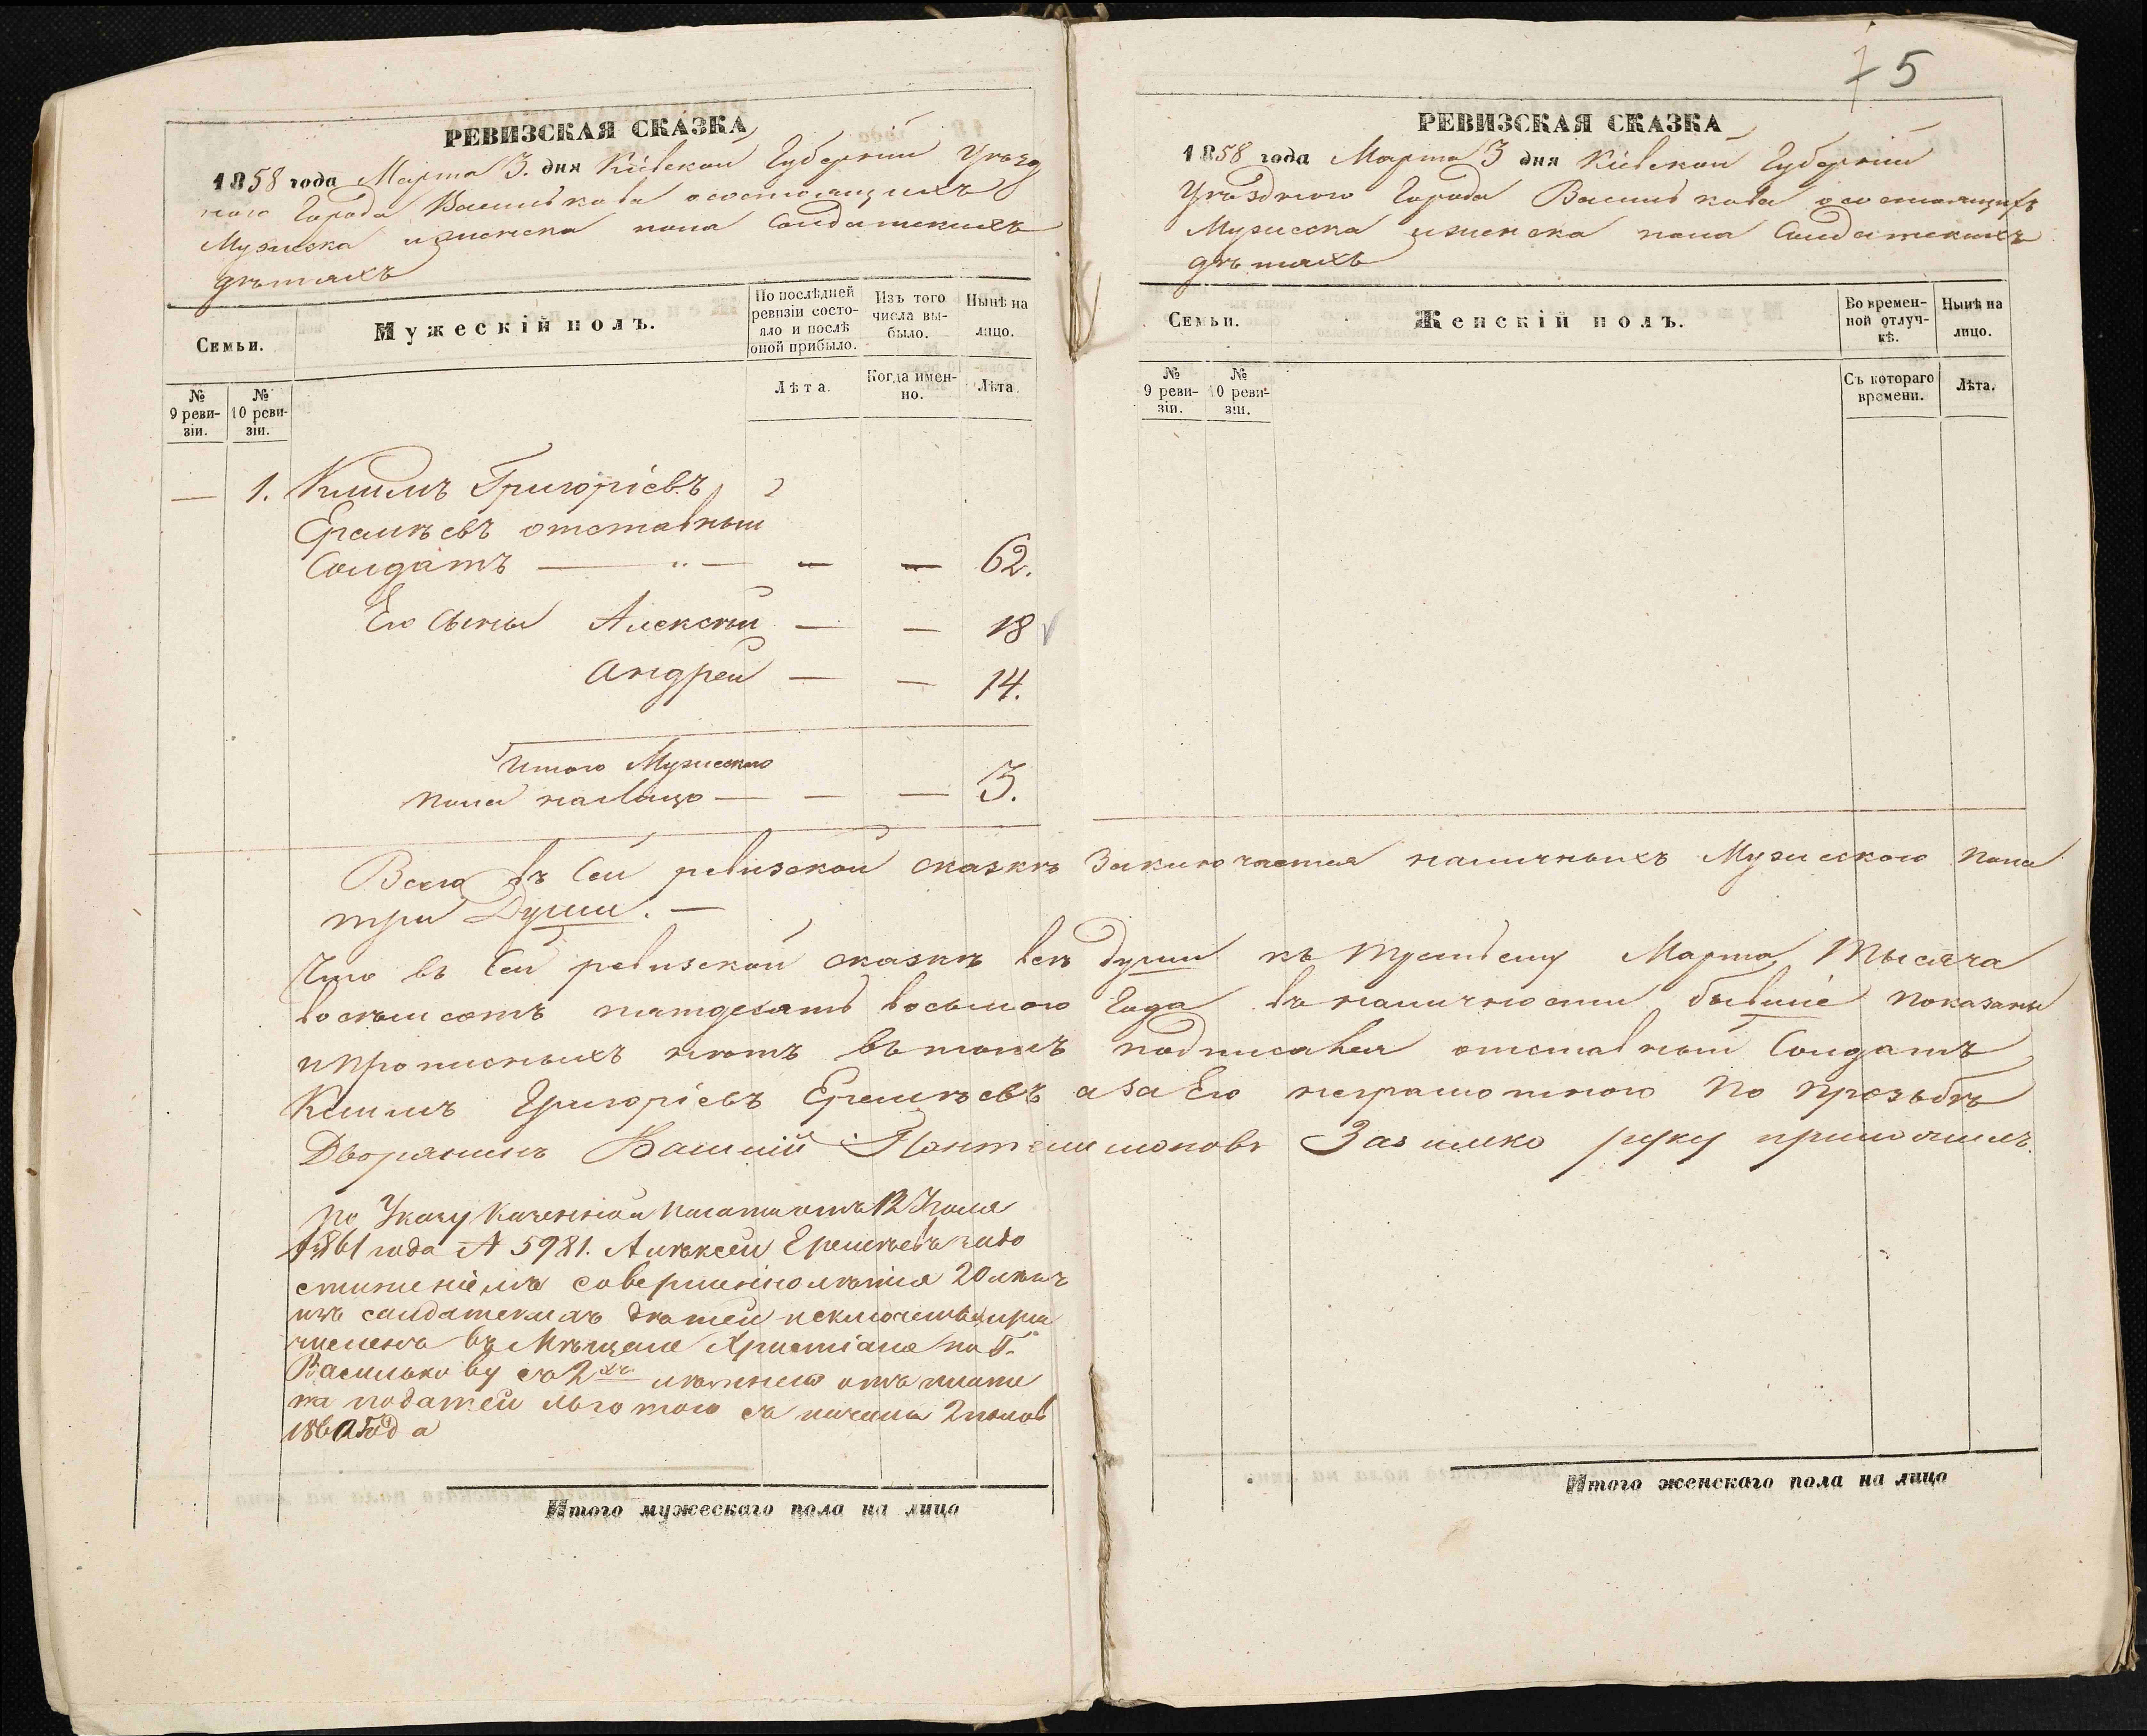 РЕВИЗСКАЯ СКАЗКА
1858 года Марта 3. дня Кіевской Губерніи Уѣзд
ного Города Василькова осостоящихъ
Мужеска иженска пола Солдатскихъ
дѣтяхъ
Семьи.
Мужескій полъ.
По послѣдней
ревизіи состо-
яло и послѣ
оной прибыло.
Изъ того
числа вы-
было.
Нынѣ на
лицо.
№
9 реви-
зіи.
№
10 реви-
зіи.
Лѣта.
Когда имен-
но.
Лѣта.
— 1. Климъ Григоріевъ
Еремѣевъ отставный
Солдатъ — " — — — 62.
Его Сыны Алексѣй — — 18
Андрей — — 14.
Итого Мужеского
пола налицо — — — 3.
75
РЕВИЗСКАЯ СКАЗКА
1858 года Марта 3 дня Кіевской Губерніи
Уѣздного Города Василькова осостоящихъ
Мужеска иженска пола Солдатскихъ
дѣтяхъ
Семьи.
Женскій полъ.
Во времен-
ной отлуч-
кѣ.
Нынѣ на
лицо.
№
9 реви-
зіи.
№
10 реви-
зіи.
Съ котораго
времени.
Лѣта.
Всего въ Сей ревизской сказкѣ Заключается наличныхъ Мужеского пола
три Души. —
Что въ Сей ревизской сказкѣ всѣ души къ Третьему Марта Тысяча
восемьсотъ пятдесятъ восьмого Года въ наличности бывшіе показаны
ипрописныхъ нѣтъ вътомъ подписался отставный Солдатъ
Климъ Григоріевъ Еремѣевъ аза Его неграмотного По прозьбѣ
Дворянинъ Пантелимоновъ руку приложилъ
По Указу Казенной Палаты отъ 12 Іюля
1861 года № 5981. Алѣксей Еремѣевъ задо
стиженіемъ совершеннолѣтія 20 лѣтъ
изъ салдатскихъ дѣтей исключенъ ипри
численъ въ Мѣщане Христіане по Г.
Василькову съ 2хъ лѣтнею отъ плате
жа податей льготою съ начала 2 полов
186 Года
Итого мужескаго пола на лицо
Итого женскаго пола на лицо